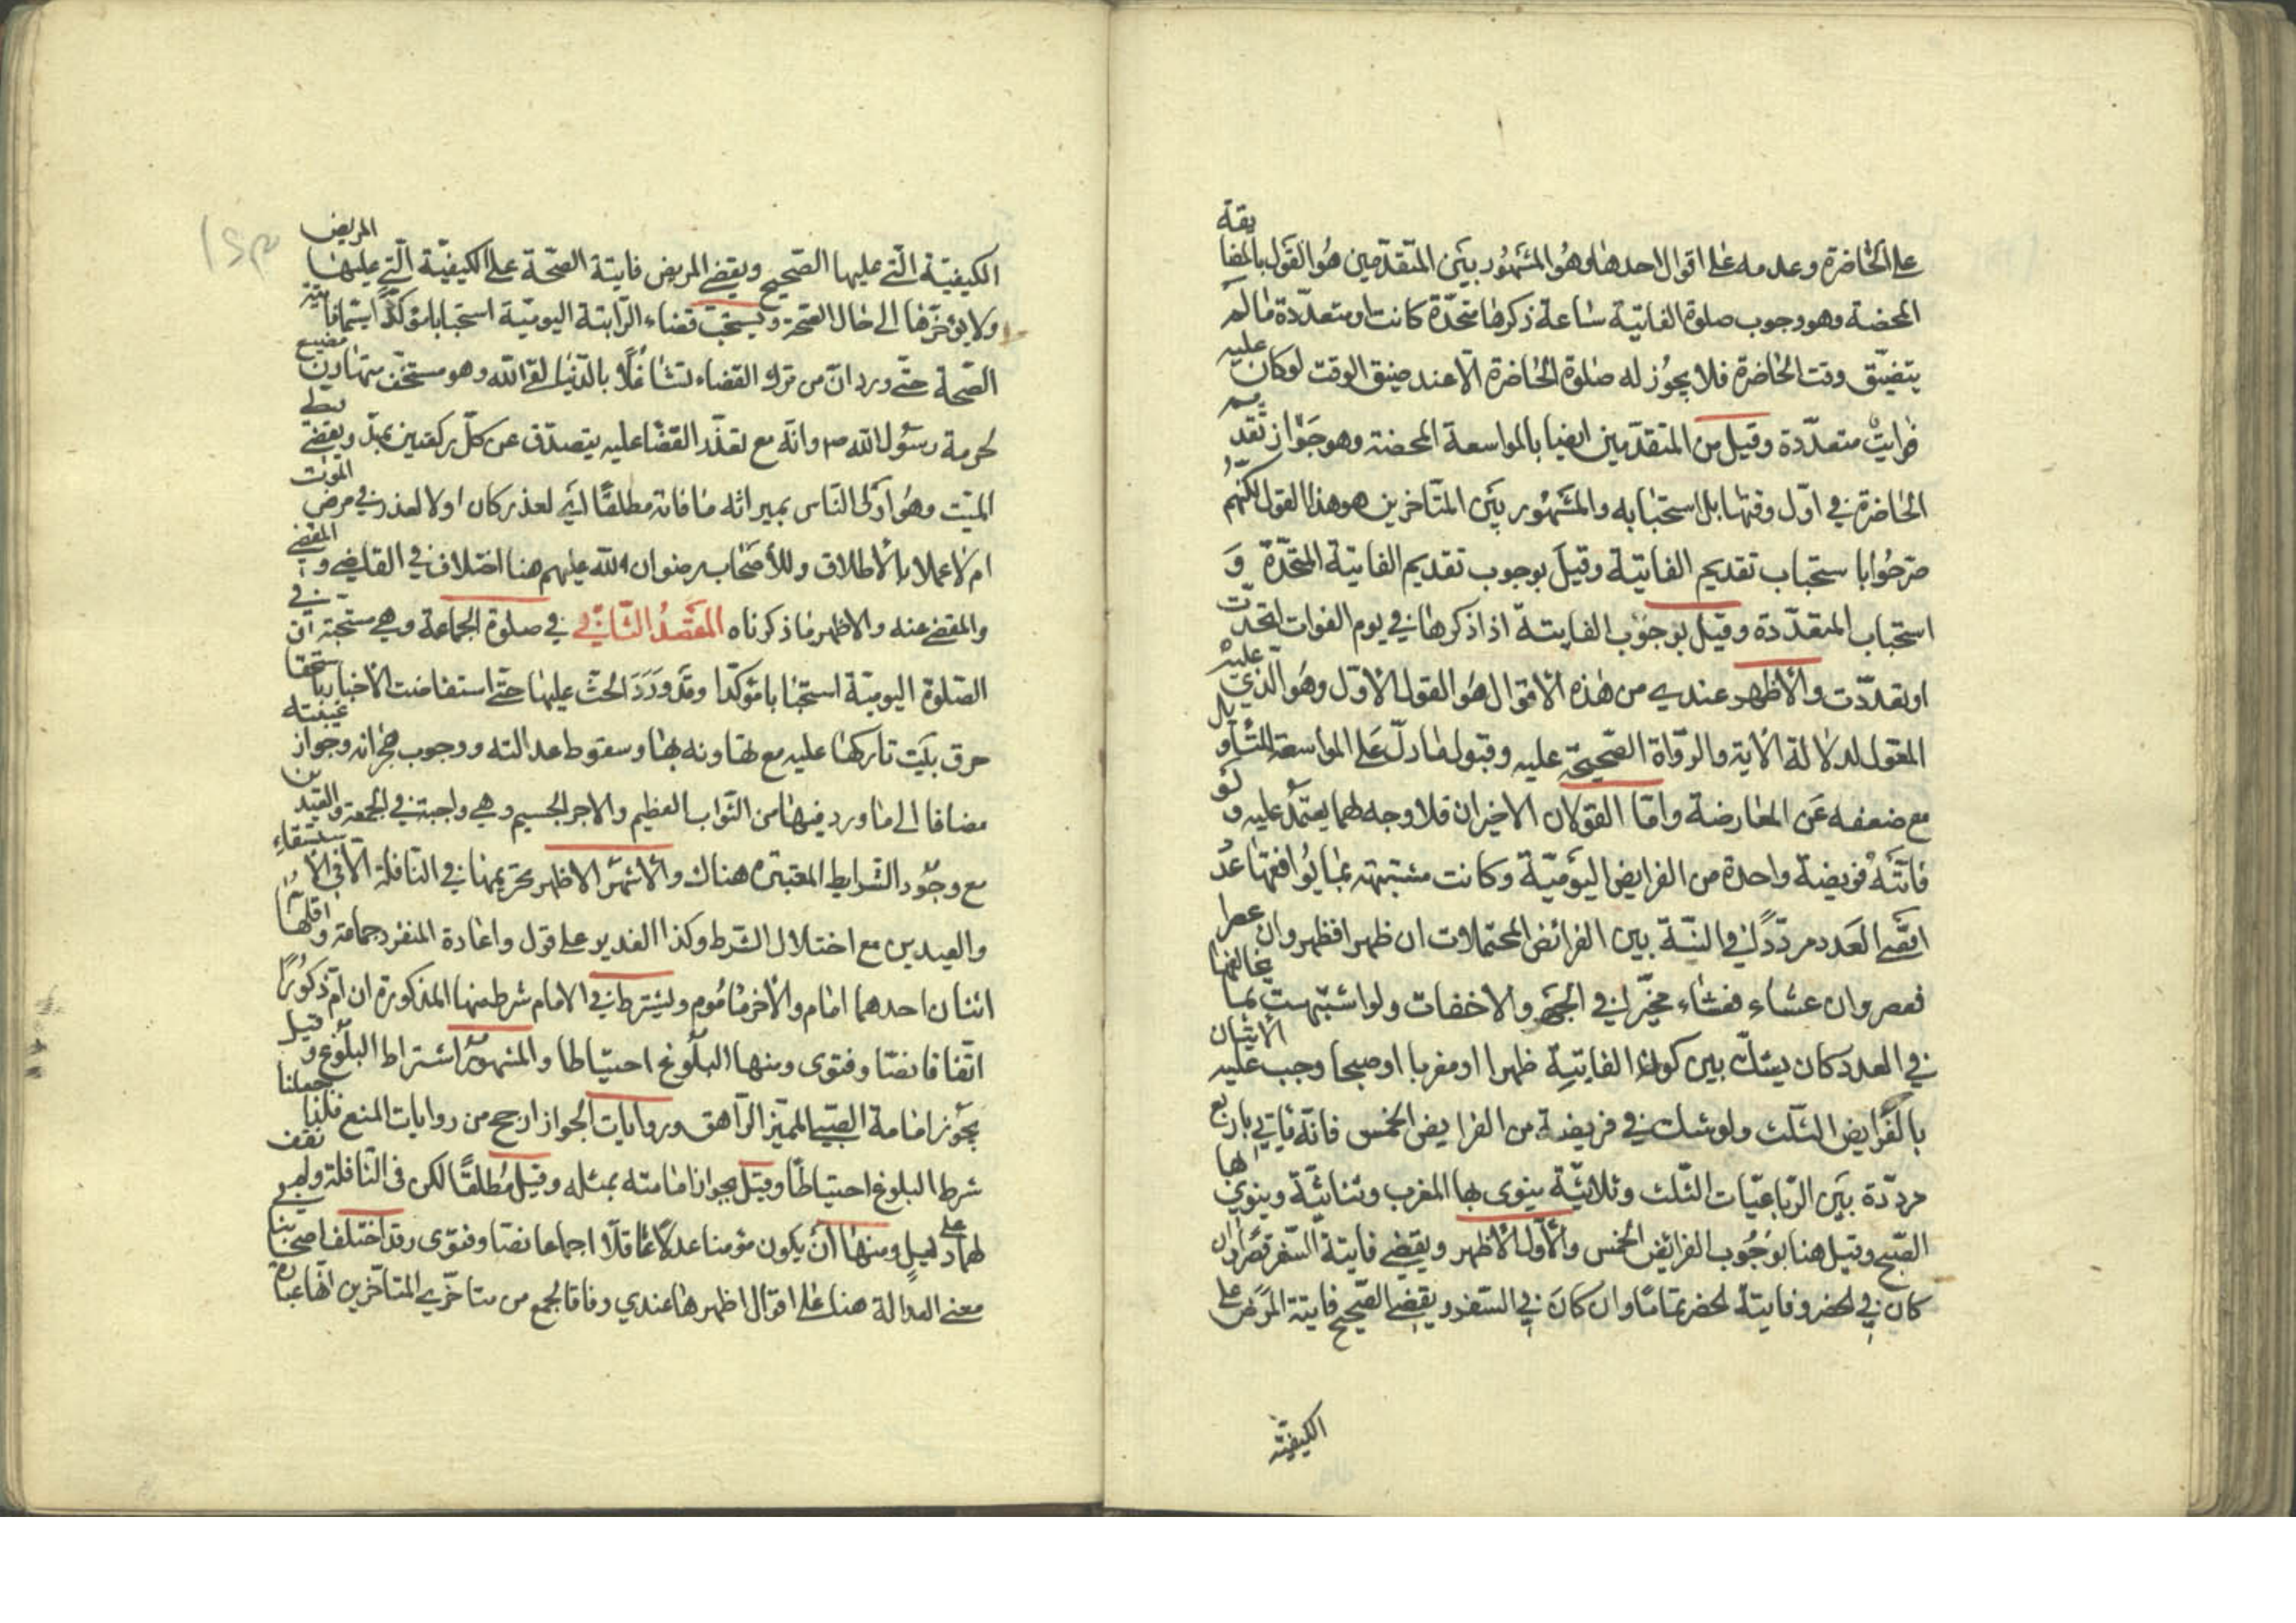 على الحاضرة وعدمه على اقوال احدها وهو المشهور بين المتقدمين هو القول بالمضايقة
المحضة وهو وجوب صلوة الفايتة ساعة ذكرها متحدة كانت او متعددة ما لم
يتضيق وقت الحاضرة فلا يجوز له صلوة الحاضرة الا عند ضيق الوقت لو كان عليه
فرايت متعددة وقيل من المتقدمين ايضا بالمواسعة المحضة وهو جواز تقديم
الحاضرة في اول وقتها بل استحبابه والمشهور بين المتاخرين هو هذا القول لكنهم
صرحوا باستحباب تقديم الفايتة وقيل بوجوب تقديم الفايتة المتحدة و
استحباب المتعددة وقيل بوجوب الفايتة اذا ذكرها في يوم الفوات اتحدت
او تعددت والاظهر عندي من هذه الاقوال هو القول الاول وهو الذي عليه
المعول لدلالة الاية والرواة الصحيحة عليه وقبول ما دل على المواسعة للتاويل
مع ضعفه عن المعارضة واما القولان الاخيران فلا وجه لهما يعتمد عليه ولو
فاتته فريضة واحدة من الفرايض اليومية وكانت مشتبهة بما يوافقها عددا
اقضى العدد مرددا في النية بين الفرائض المحتملات ان ظهرا فظهر وان عصرا
فعصر وان عشاء فعشاء مخيرا في الجهر والاخفات ولو اشتبهت بما يخالفها
في العدد كان يشك بين كون الفايتة ظهرا او مغربا او صبحا وجب عليه الاتيان
بالفرايض الثلث ولو شك في فريضة من الفرايض الخمس فانه ياتي باربع
مرددة بين الرباعيات الثلث وثلاثية ينوى بها المغرب وثنائية وينوي بها
الصبح وقيل هنا بوجوب الفرائض الخمس والاول الاظهر ويقضي فايتة السفر قصرا وان
كان في الحضر وفايتة الحضر تماما وان كان في السفر ويقضي الصحيح فايتة المرض على
الكيفية
الكيفية التي عليها الصحيح ويقضي المريض فايتة الصحة على الكيفية التي عليها المريض
ولا يؤخرها الى حال الصحة ويستحب قضاء الراتبة اليومية استحبابا مؤكدا سيما فايتة
الصحة حتى ورد ان من ترك القضاء تشاغلا بالدنيا لقى الله وهو مستخف متهاون مضيع
لحرمة رسول الله ص وانه مع تعذر القضا عليه يتصدق عن كل ركعتين بمد ويقضي
الميت وهو اولى الناس بميراثه ما فاته مطلقا اي لعذر كان او لا لعذر في مرض الموت
ام لا عملا بالاطلاق وللاصحاب رضوان الله عليهم هنا اختلاف في القاضي والمقضي
والمقضي عنه والاظهر ما ذكرناه المقصد الثاني في صلوة الجماعة وهي مستحبة في
الصلوة اليومية استحبابا مؤكدا وقد ورد الحث عليها حتى استفاضت الاخبار باستحقاق
حرق بيت تاركها عليه مع تهاونه بها وسقوط عدالته ووجوب هجرانه وجواز غيبته
مضافا الى ما ورد فيها من الثواب العظيم والاجر الجسيم وهي واجبة في الجمعة والعيدين
مع وجود الشرايط المعتبره هناك والاشهر الاظهر تحريمها في النافلة الا في الاستسقاء
والعيدين مع اختلال الشرط وكذا الغدير على قول واعادة المنفرد جماعة واقلها
اثنان احدهما امام والاخر ماموم ويشترط في الامام شرط منها المذكورة ان ام ذكورا
اتفاقا نصا وفتوى ومنها البلوغ احتياطا والمشهور اشتراط البلوغ وقيل
يجوز امامة الصبي المميز المراهق وروايات الجواز ارجح من روايات المنع فلذا جعلنا
شرط البلوغ احتياطا وقيل بجواز امامته بمثله وقيل مطلقا لكن في النافلة ولم نقف
لهما على دليل ومنها ان يكون مؤمنا عدلا عاقلا اجماعا نصا وفتوى وقد اختلف اصحابنا في
معنى العدالة هنا على اقوال اظهرها عندي وفاقا لجمع من متاخري المتاخرين انها عبارة